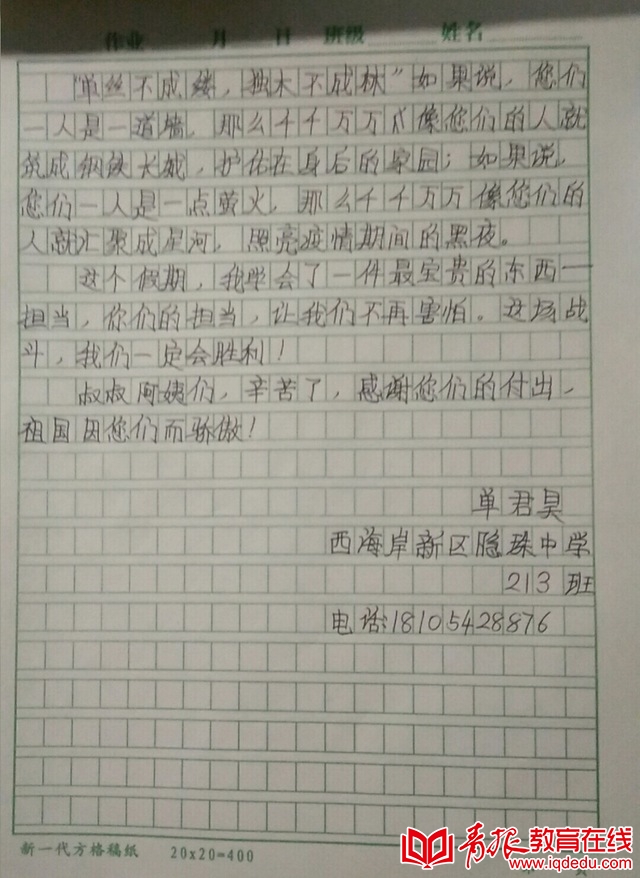 作业 月 日 班级 姓名
“单丝不成缕，独木不成林”如果说，您们
一人是一道墙，那么千千万万个像您们的人就
筑成钢铁长城，护佑在身后的家园；如果说，
您们一人是一点萤火，那么千千万万像您们的
人就汇聚成星河，照亮疫情期间的黑夜。
这个假期，我学会了一件最宝贵的东西—
担当，你们的担当，让我们不再害怕。这场战
斗，我们一定会胜利！
叔叔阿姨们，辛苦了，感谢您们的付出，
祖国因您们而骄傲！
单君昊
西海岸新区隐珠中学
213班
电话:18105428876
新一代方格稿纸 20x20=400
青报教育在线
www.iqdedu.com